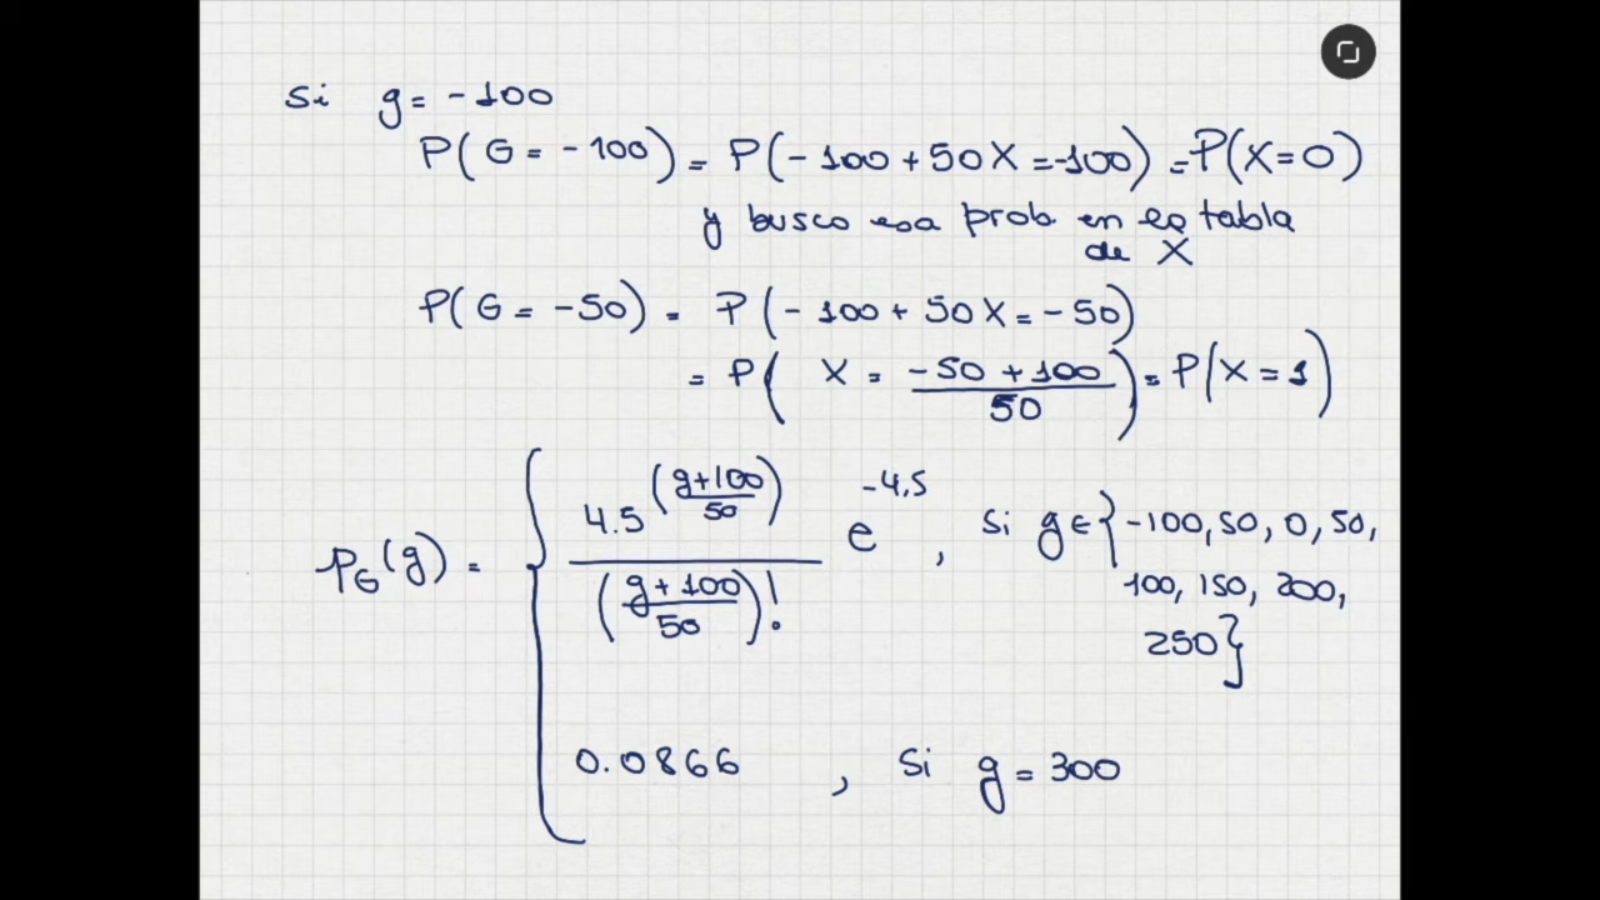 Si g = -100
P(G = -100) = P(-100 + 50X = -100) = P(X = 0)
y busco esa prob. en la tabla
de X
P(G = -50) = P(-100 + 50X = -50)
= P( X = (-50 + 100)/50 ) = P(X = 1)
p_G(g) = { 4.5^((g+100)/50) / ((g+100)/50)! e^(-4.5) , si g ∈ {-100, 50, 0, 50,
100, 150, 200,
250}
0.0866 , si g = 300